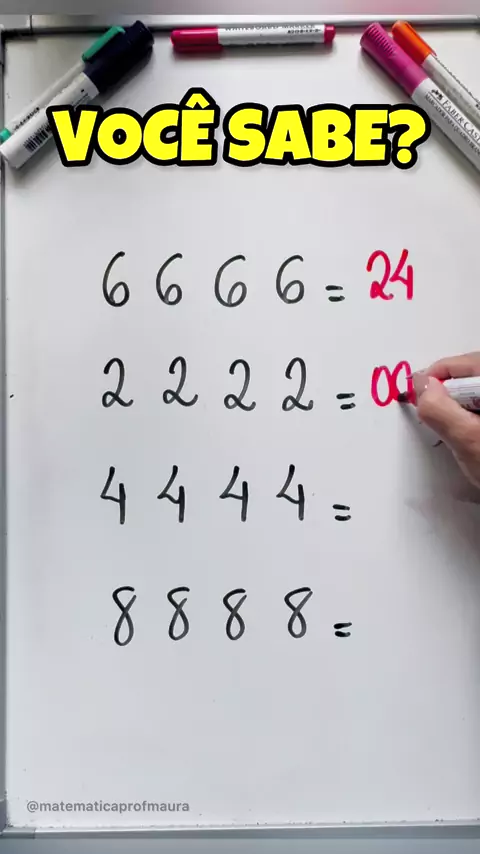 VOCÊ SABE?
6 6 6 6 = 24
2 2 2 2 = 00
4 4 4 4 =
8 8 8 8 =
@matematicaprofmaura